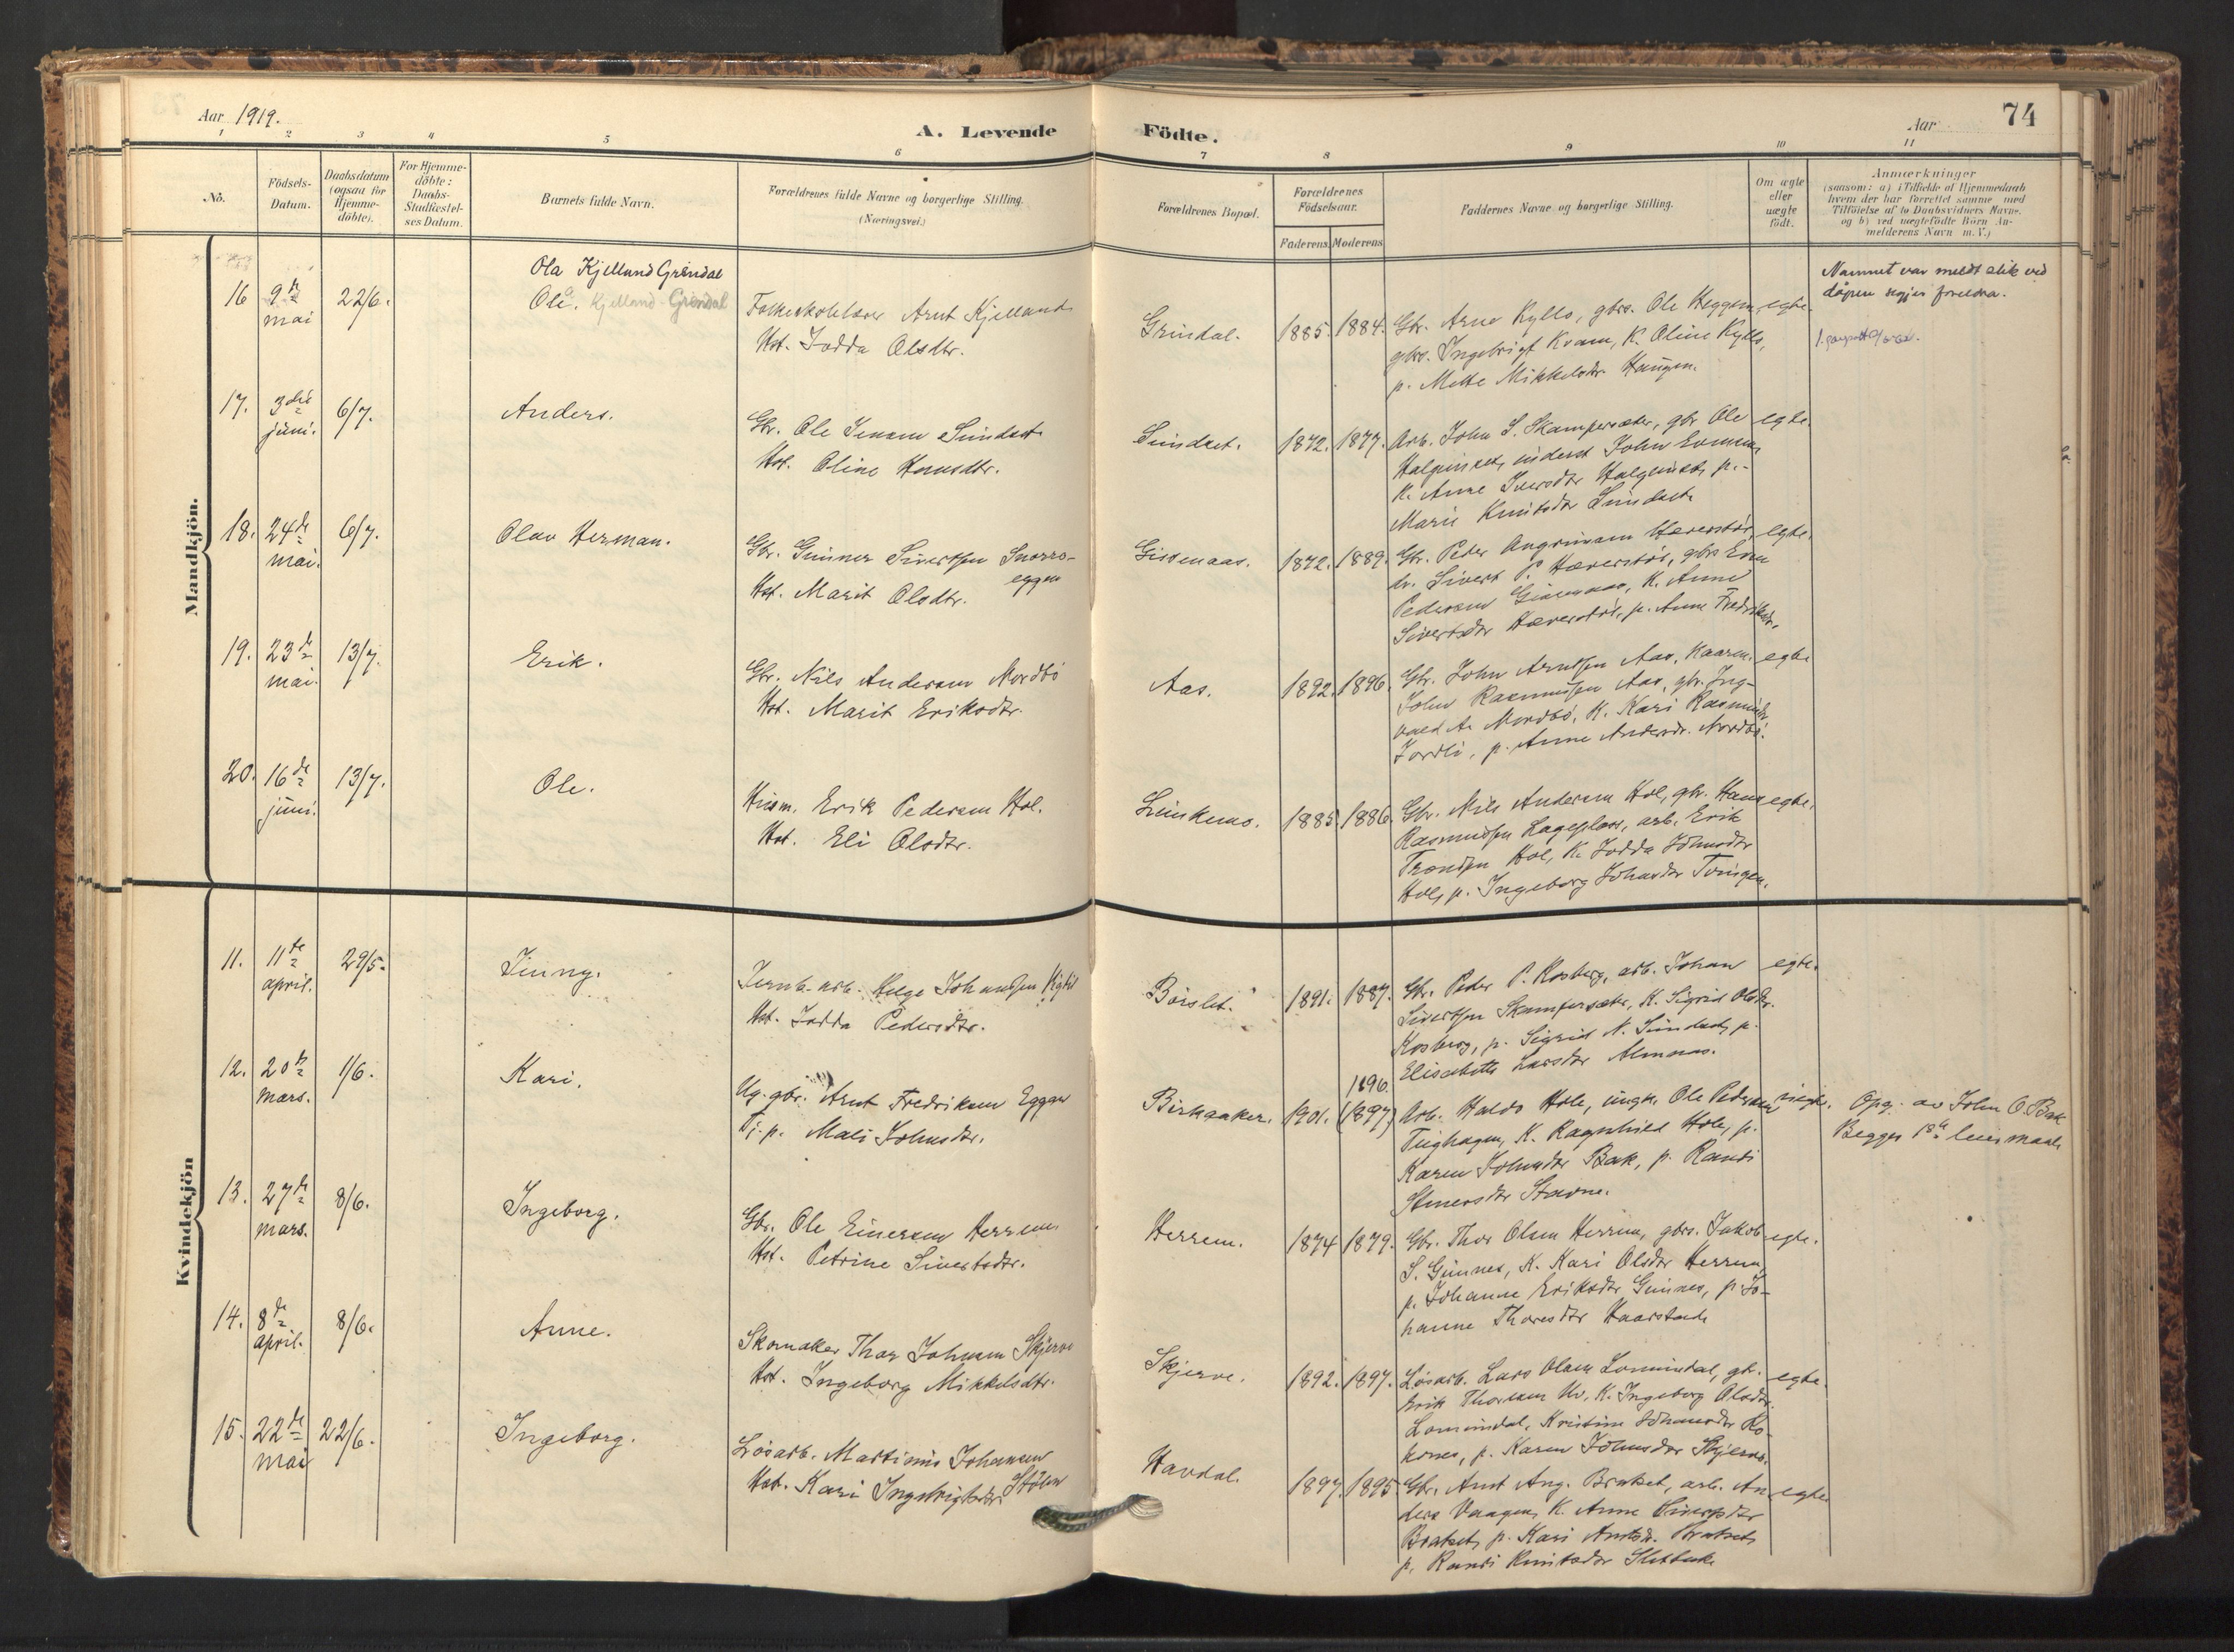 Aar 1919.
A. Levende Födte.
Aar
74
1 2 3 4 5 6 7 8 9 10 11
No.
Födsels-
Datum.
Daabsdatum
(ogsaa for
Hjemme-
döbte).
For Hjemme-
döbte:
Daabs-
Stadfæstel-
ses Datum.
Barnets fulde Navn.
Forældrenes fulde Navne og borgerlige Stilling.
(Næringsvei.)
Forældrenes Bopæl.
Forældrenes
Födselsaar.
Faderens. Moderens.
Faddernes Navne og borgerlige Stilling.
Om ægte
eller
uægte
födt.
Anmærkninger
(saasom: a) i Tilfælde af Hjemmedaab
hvem der har forrettet samme med
Tilföielse af to Daabsvidners Navne.
og b) ved uægtefödte Börn An-
melderens Navn m.V.)
Mandkjön.
16 9de mai 22/6.
Ola Kjelland Grindal
Ole. Kjelland-Grindal
Folkeskolelærer Arnt Kjelland
Hst. Jodda Olsdtr.
Grindal. 1885. 1884.
Gbr. Arne Kyllo, gbrs. Ole Heggem,
gbrs. Ingebrigt Kvam, K. Oline Kyllo,
p. Mette Mikkelsdr. Haugen.
egte.
Namnet var meldt slik ved
dåpen segjer foreldra.
17. 3die juni. 6/7.
Anders.
Gbr. Ole Jensen Sundset
Hst. Oline Hansdtr.
Sundset. 1872. 1877.
Arb. John S. Skamfersæter, gbr Ole
Halgunset, inderst John Evensen
K. Anne Iversdtr Halgunset, p.-
Marie Knutsdtr Sundset
egte.
18. 24de mai. 6/7.
Olav Herman.
Gbr. Gunnar Sivertsen Snorro-
eggen
Hst. Marit Olsdtr.
Gisnaas. 1872. 1889.
Gbr. Peder Hæverstöl,
Sivert P. Hæverstöl, gbrs Even
Pedersen Gisnaas, K. Anne
Sivertsdtr Hæverstöl, p. Anne Fredriksdr.
egte.
19. 23de mai. 13/7.
Erik.
Gbr. Nils Andersen Nordbö
Hst. Marit Eriksdtr.
Aas. 1892. 1896.
Gbr. John Arntsen Aas, Kaaren.
John Rasmussen Aas, gbr. Ing-
vald A. Nordbö, K. Kari Rasmusdr
Jordli, p. Anne Andersdr. Nordbö.
egte
20. 16de juni. 13/7.
Ole.
Husm. Erik Pedersen Hol.
Hst. Eli Olsdtr.
1885 1886.
Gbr. Nils Andersen Hol, gbr. Hans
Rasmussen arb. Erik
Trondsen Hol, K. Jodda Johnsdtr
Hol, p. Ingeborg Johnsdtr
egte.
Kvindekjön
11. 11te april. 29/5.
Jenny.
Jernb. arb. Helge Johansen
Hst. Jodda Pedersdtr.
Börslet. 1891. 1887.
Gbr. Peder P. Kosberg, arb. Johan
Sivertsen Skamfersæter, K. Sigrid Olsdr.
Kosberg, p. Sigrid N. Sundset, p.
Elisabeth Larsdtr Almaas.
egte.
12. 20de mars. 1/6.
Kari.
Ug. gbr. Arnt Fredriksen Eggan
Tj. p. Mali Johnsdtr.
Birkaaker. 1901. 1896. (1897)
Arb. Haldo Hole, ungk. Ole Pedersen
K. Ragnhild Hole, p.
Karen Johnsdtr Bak, p. Randi
Stavne.
uegte.
Opg. av John O. Bak
Begges 1ste leiermaal.
13. 27de mars. 8/6.
Ingeborg.
Gbr. Ole Einersen Herrem
Hst. Petrine Sivertsdtr.
Herrem. 1874 1879.
Gbr. Thor Olsen Herrem, gbrs. Jakob
S. Gunnes, K. Kari Olsdtr Herrem,
p. Johanne Eriksdtr Gunnes, p. Jo-
hanne Thoresdtr Haarstad
egte.
14. 8de april. 8/6.
Anne.
Skomaker Thor Johnsen Skjerve
Hst. Ingeborg Mikkelsdtr.
Skjerve. 1892. 1897.
Lösarb. Lars Olsen Lomundal, gbr.
Erik Thoresen K. Ingeborg Olsdtr
Lomundal, Kristine Johansdtr
p. Karen Johnsdtr Skjerve.
egte.
15. 22de mai 22/6.
Ingeborg.
Lösarb. Martinus Johansen
Stölen
Hst. Kari Ingebrigtsdtr.
Havdal. 1897. 1895
Gbr. Arnt Ang. Brakset, arb. An-
ders Vaagen, K. Anne Sivertsdtr
Brakset, p. Kari Arntsdr. Brakset,
p. Randi Knutsdtr
egte.